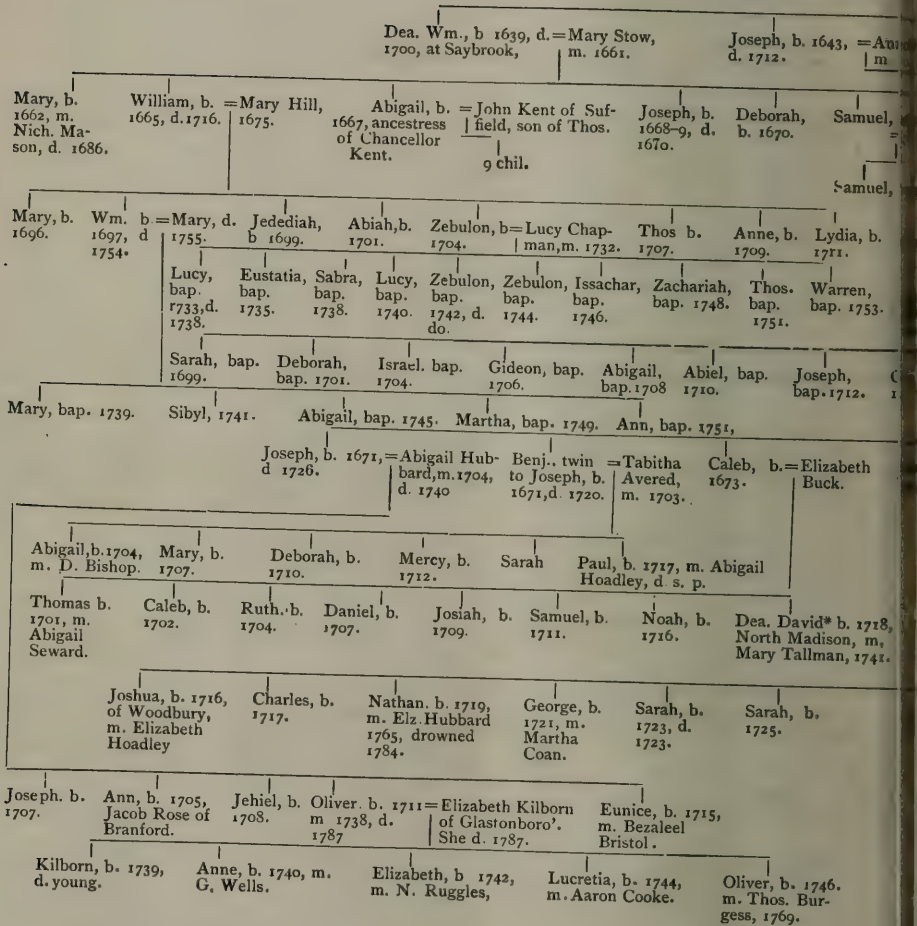 Dea. Wm., b 1639, d. = Mary Stow,
1700, at Saybrook, m. 1661.
Joseph, b. 1643, =
d. 1712. m
Mary, b.
1662, m.
Nich. Ma-
son, d. 1686.
William, b. = Mary Hill,
1665, d. 1716. 1675.
Abigail, b. = John Kent of Suf-
1667, ancestress field, son of Thos.
of Chancellor
Kent.
9 chil.
Joseph, b.
1668-9, d.
1670.
Deborah,
b. 1670.
Samuel,
=
Samuel,
Mary, b.
1696.
Wm. b. = Mary, d.
1697, d 1755.
1754.
Jedediah,
b 1699.
Abiah, b.
1701.
Zebulon, b = Lucy Chap-
1704. man, m. 1732.
Thos b.
1707.
Anne, b.
1709.
Lydia, b.
1711.
Lucy,
bap.
1733, d.
1738.
Eustatia,
bap.
1735.
Sabra,
bap.
1738.
Lucy,
bap.
1740.
Zebulon,
bap.
1742, d.
do.
Zebulon,
bap.
1744.
Issachar,
bap.
1746.
Zachariah,
bap. 1748.
Thos.
bap.
1751.
Warren,
bap. 1753.
Sarah, bap.
1699.
Deborah,
bap. 1701.
Israel. bap.
1704.
Gideon, bap.
1706.
Abigail,
bap. 1708
Abiel, bap.
1710.
Joseph,
bap. 1712.
Mary, bap. 1739. Sibyl, 1741. Abigail, bap. 1745. Martha, bap. 1749. Ann, bap. 1751,
Joseph, b. 1671, = Abigail Hub-
d 1726. bard, m. 1704,
d. 1740
Benj., twin = Tabitha
to Joseph, b. Avered,
1671, d. 1720. m. 1703.
Caleb, b. = Elizabeth
1673. Buck.
Abigail, b. 1704,
m. D. Bishop.
Mary, b.
1707.
Deborah, b.
1710.
Mercy, b.
1712.
Sarah
Paul, b. 1717, m. Abigail
Hoadley, d s. p.
Thomas b.
1701, m.
Abigail
Seward.
Caleb, b.
1702.
Ruth. b.
1704.
Daniel, b.
1707.
Josiah, b.
1709.
Samuel, b.
1711.
Noah, b.
1716.
Dea. David* b. 1718,
North Madison, m,
Mary Tallman, 1741.
Joshua, b. 1716,
of Woodbury,
m. Elizabeth
Hoadley
Charles, b.
1717.
Nathan. b. 1719,
m. Elz. Hubbard
1765, drowned
1784.
George, b.
1721, m.
Martha
Coan.
Sarah, b.
1723, d.
1723.
Sarah, b.
1725.
Joseph. b.
1707.
Ann, b. 1705,
Jacob Rose of
Branford.
Jehiel, b.
1708.
Oliver. b. 1711 = Elizabeth Kilborn
m 1738, d. of Glastonboro'.
1787 She d. 1787.
Eunice, b. 1715,
m. Bezaleel
Bristol.
Kilborn, b. 1739,
d. young.
Anne, b. 1740, m.
G. Wells.
Elizabeth, b 1742,
m. N. Ruggles,
Lucretia, b. 1744,
m. Aaron Cooke.
Oliver, b. 1746.
m. Thos. Bur-
gess, 1769.